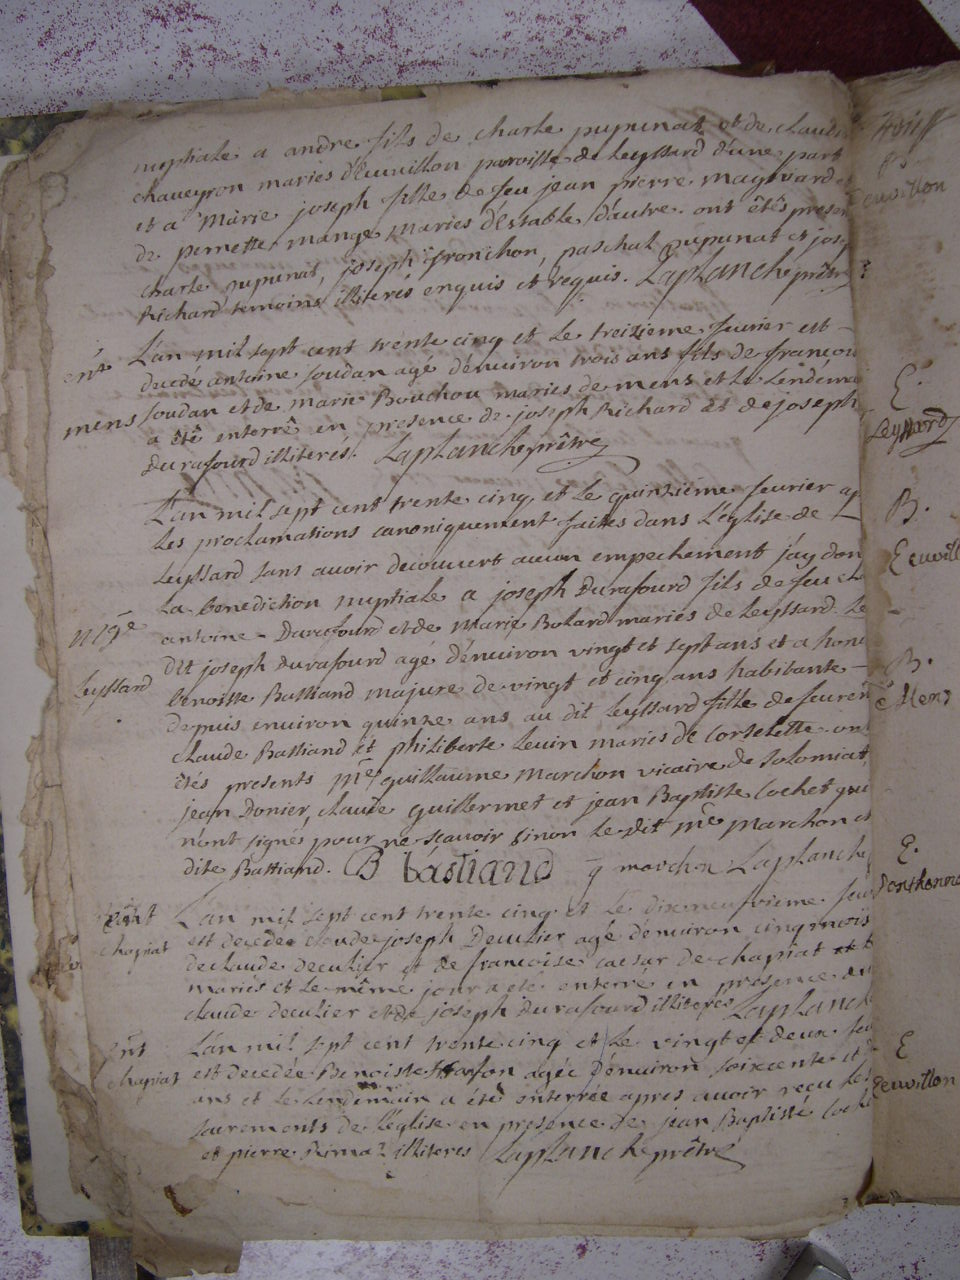 nuptiale a andre fils de charle pupunat et de claudi
chaveyron maries d'Euvillon paroisse de leyssard d'une part
et a Marie joseph fille de feu jean pierre maynard
de pernette mange maries d'Estable d'autre. ont êtés presen
charle pupunat, joseph tronchon, paschal pupunat et jos
Richard temoins illiterés enquis et requis. Laplanche prêtre
ent L'an mil sept cent trente cinq et le treizieme fevrier est
decedé antoine soudan agé d'environ trois ans fils de françois
mens soudan et de marie Bouchou maries de mens et le lendemai
a êté enterré en presence de joseph Richard et de joseph
Durafourd illiterés. Laplanche prêtre
L'an mil sept cent trente cinq et le quinzieme fevrier ap
les proclamations canoniquement faites dans L'eglise de
Leyssard sans avoir decouvert aucun empechement j'ay don
la benediction nuptiale a joseph Durafourd fils de feu
mge antoine Durafourd et de Marie Bolard maries de leyssard. Le
dit joseph durafourd agé d'environ vingt et sept ans et a hon
Leyssard benoitte Bastiand majure de vingt et cinq ans habitante
depuis environ quinze ans au dit Leyssard fille de feu
claude Bastiand et philiberte levin maries de Corselette ont
êtés presents mre guillaume Marchon vicaire de Solomiat
jean Donier, claude guillermet et jean Baptiste Cochet qui
n'ont signés pour ne scavoir sinon le dit mre Marchon et
dite Bastiand. B bastiand g marchon Laplanche
ent L'an mil sept cent trente cinq et le dixneufvieme fev
chapiat est decedé claude joseph Deculier agé d'environ cinq mois
de claude deculier et de françoise caesar de chapiat
maries et le même jour a été enterré en presence du
claude deculier et de joseph durafourd illiterés Laplanch
ent L'an mil sept cent trente cinq et le vingt et deux fev
chapiat est decedée Benoiste agée d'environ soixcente et
ans et le lendemain a été enterrée apres avoir reçu les
sacrements de l'église en presence de jean Baptiste Coche
et pierre illiteres Laplanche prêtre
Trois
Euvillon
E.
Leyssard
B.
Euvill
B.
Mens
E.
E
Euvillon